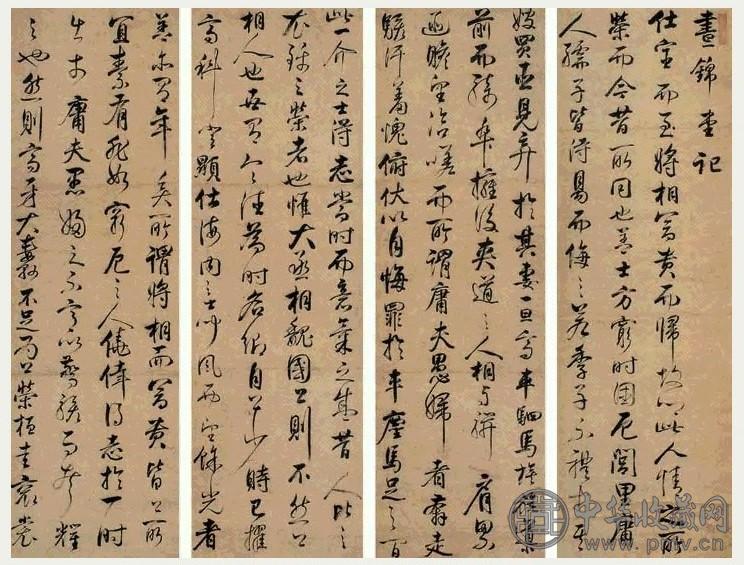 晝錦堂記
仕宦而至將相富貴而歸故鄉此人情之所
榮而今昔所同也蓋士方窮時困厄閭里庸
人孺子皆得易而侮之若季子不禮於其
嫂買臣見棄於其妻一旦高車駟馬旗旄導
前而騎卒擁後夾道之人相與駢肩累
迹瞻望咨嗟而所謂庸夫愚婦者奔走
駭汗羞愧俯伏以自悔罪於車塵馬足之間
此一介之士得志當時而意氣之盛昔人比之
衣錦之榮者也惟大丞相魏國公則不然公
相人也世有令德為時名卿自公少時已擢
高科登顯仕海內之士聞風而望餘光者
蓋亦有年矣所謂將相而富貴皆公所
宜素有非如窮厄之人僥倖得志於一時
出於庸夫愚婦之不意以驚駭而夸耀
之也然則高牙大纛不足為公榮桓圭袞裳
中华收藏网
www.pmv.cn